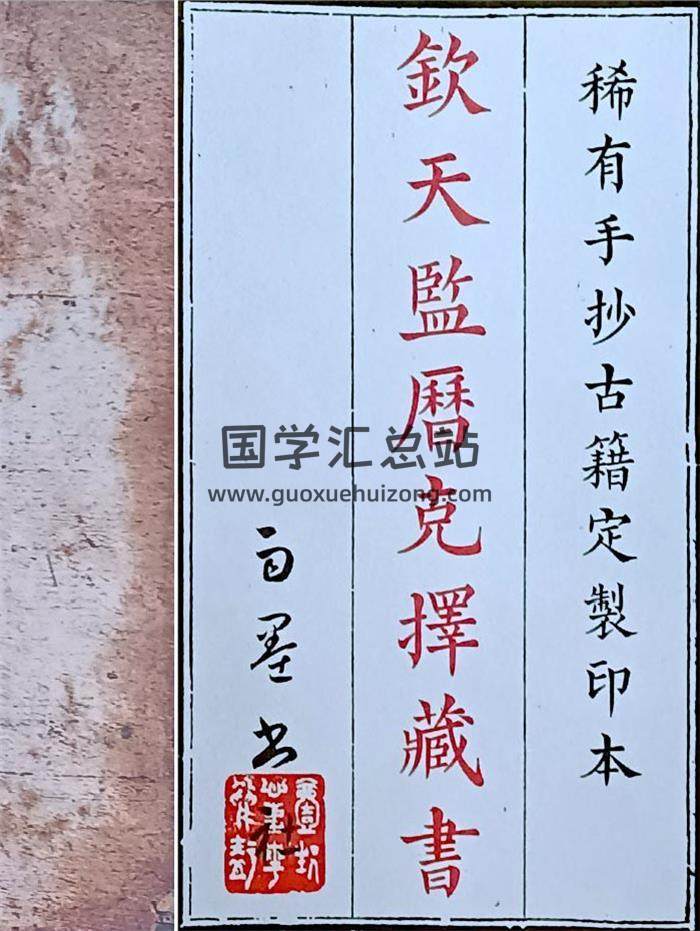 稀有手抄古籍定製印本
欽天監曆克擇藏書
国学汇总站
www.guoxuehuizong.com
墨社